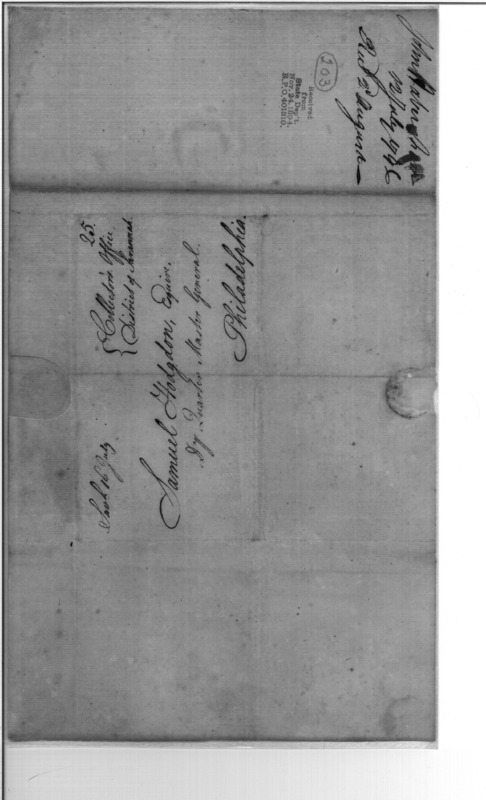 John Habersham
12 July 1796
Recd 2 August
203
Received
from
State Dep't.
Nov. 24, 1894,
R.P.O. 401810.
25.
Collector's Office
District of Savannah
Samuel Hodgdon, Esquire,
Dy Quarter Master General.
Philadelphia.
Savh 16 July